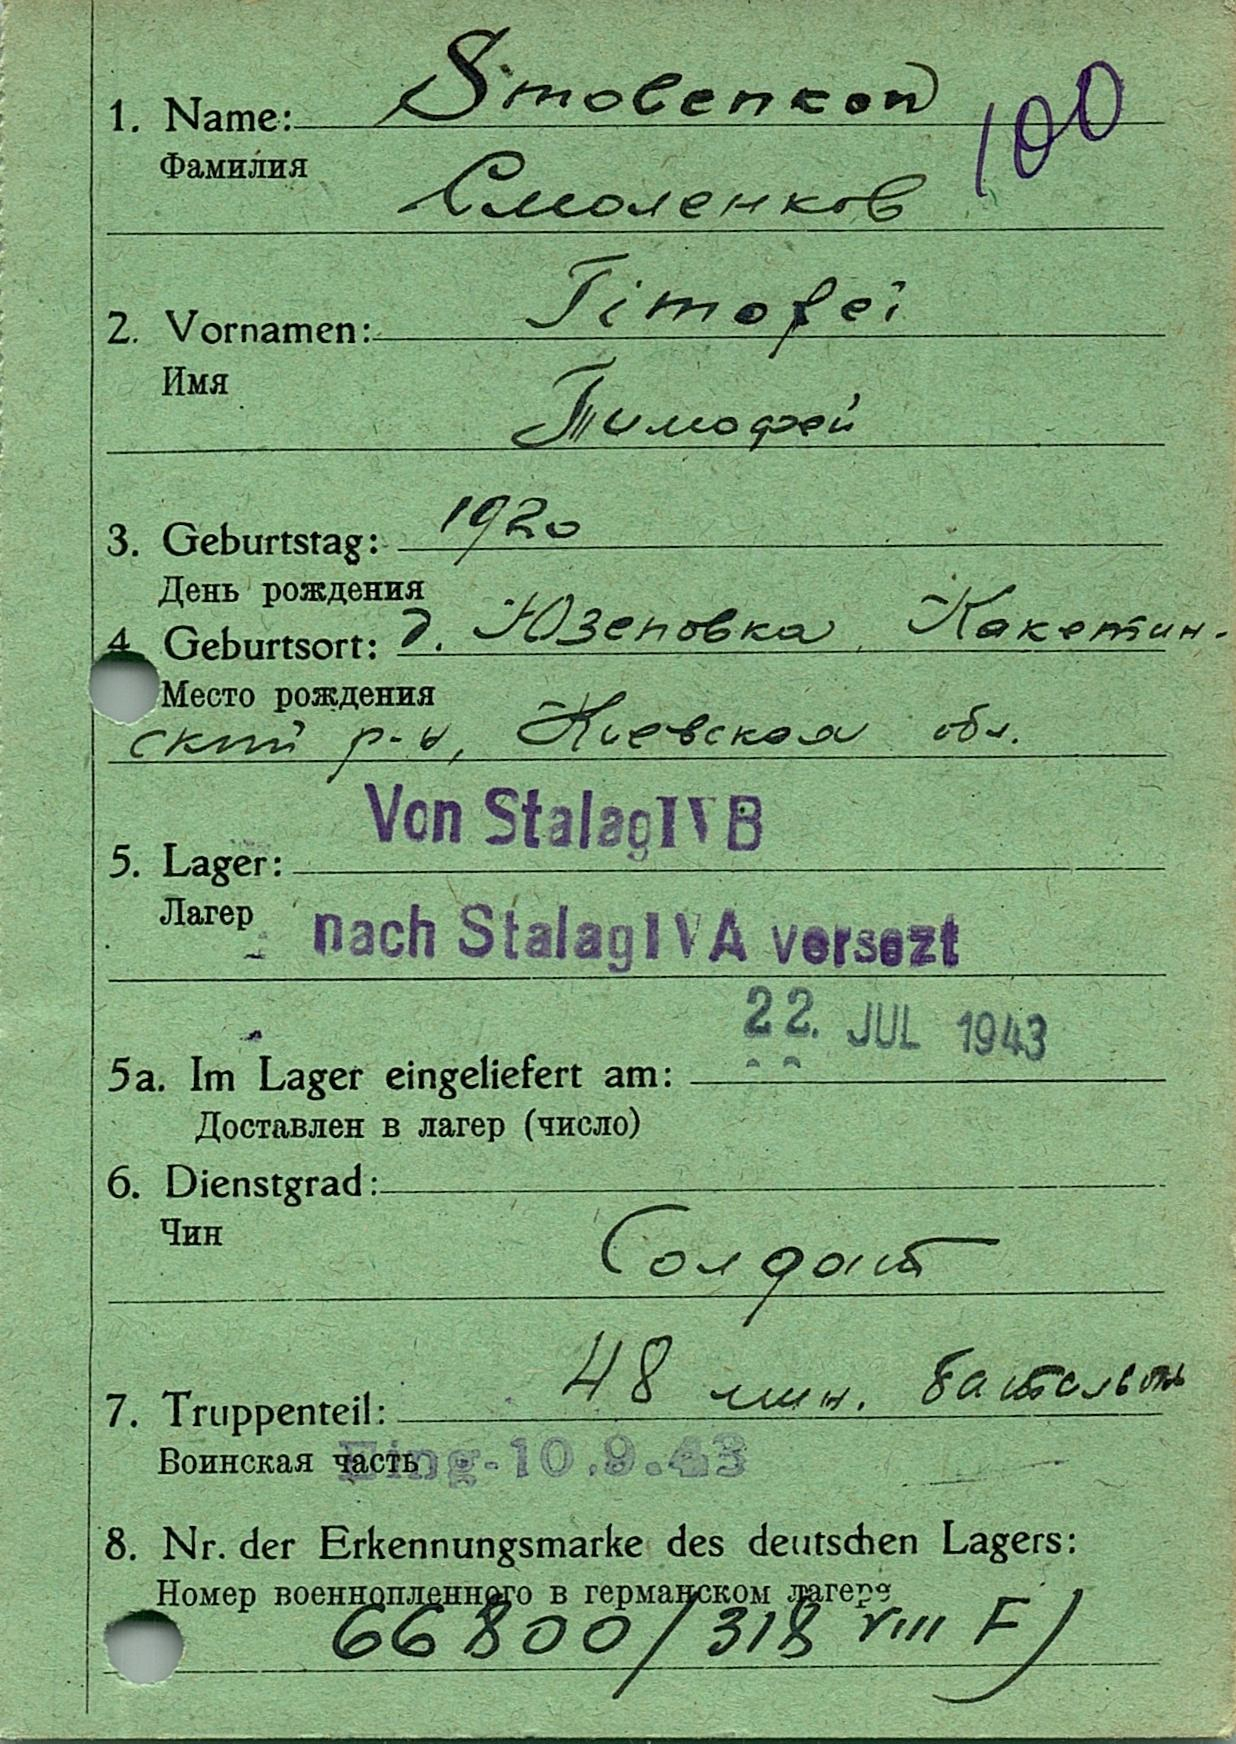 1. Name: Smolenkow
100
Фамилия
Смоленков
2. Vornamen: Timofei
Имя
Тимофей
3. Geburtstag: 1920
День рождения
4. Geburtsort: д. Юзеповка, Какетин-
Место рождения
ский р-н, Киевская обл.
Von Stalag IV B
5. Lager:
Лагер
nach Stalag IV A versezt
22. JUL 1943
5a. Im Lager eingeliefert am:
Доставлен в лагер (число)
6. Dienstgrad:
Чин
Солдат
7. Truppenteil: 48 мин. батальон
Воинская часть Eing-10.9.43
8. Nr. der Erkennungsmarke des deutschen Lagers:
Номер военнопленного в германском лагере
66800/318 VIII F)